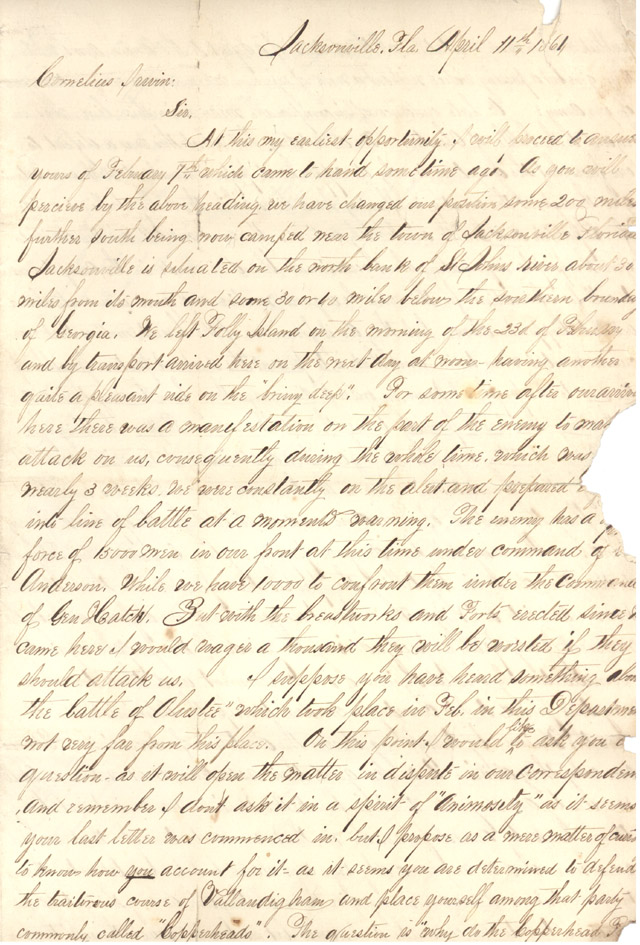 Jacksonville, Fla. April 11th, 1864
Cornelius Irwin:
Sir,
At this my earliest opportunity I will proceed to answer
yours of February 7th which came to hand some time ago. As you will
percieve by the above heading, we have changed our position some 200 miles
further south being now camped near the town of Jacksonville Florida
Jacksonville is situated on the north bank of St Johns river about 30
miles from its mouth and some 30 or 40 miles below the southern bounday
of Georgia. We left Folly Island on the morning of the 23d of February
and by transport arrived here on the next day at noon – having another
quite a pleasant ride on the "briny deep". For some time after our arriv
here there was a manifestation on the part of the enemy to mak
attack on us, consequently during the whole time, which was
nearly 3 weeks, we were constantly on the alert and prepared
into line of battle at a moments warning. The enemy has a
force of 15000 men in our front at this time under command of
Anderson. While we have 10000 to confront them under the Command
of Gen Hatch. But with the breastworks and Forts erected since
came here I would wager a thousand they will be worsted if they
should attack us. I suppose you have heard something abou
the battle of Olustee" which took place in Feb. in this Departmen
not very far from this place. On this point I would like to ask you a
question – as it will open the matter in dispute in our corresponden
and remember I dont ask it in a spirit of "Animosity" as it seems
your last letter was commenced in, but I propose as a mere matter of curi
to know how you account for it – as it seems you are determined to defend
the traitorous course of Vallandigham and place yourself among that party
commonly called "Copperheads". The question is "why do the Copperhead